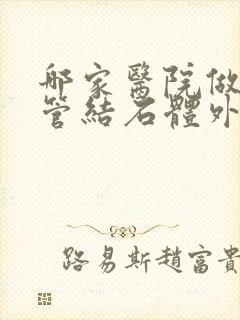 哪家醫院做
管結石體外
路易斯趙富貴